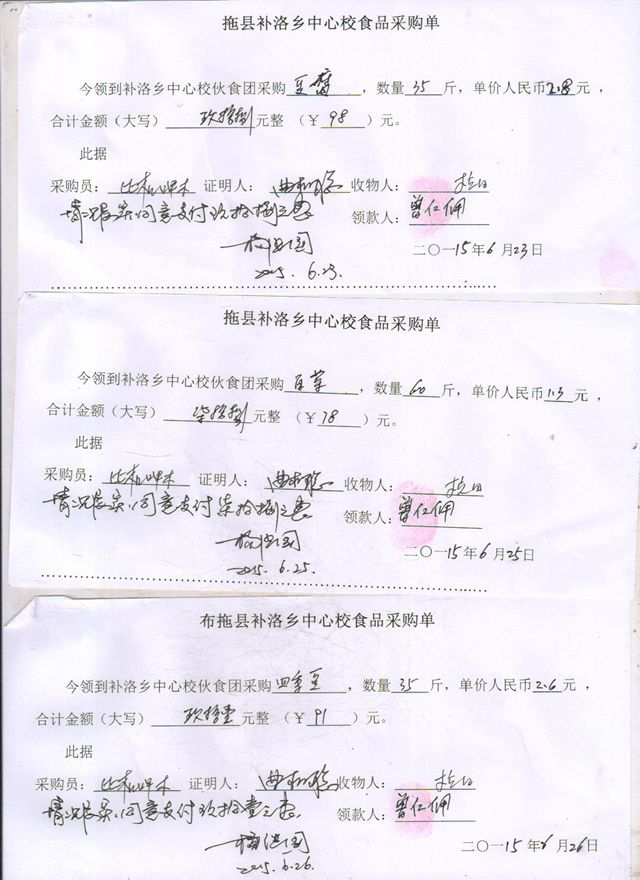 拖县补洛乡中心校食品采购单
今领到补洛乡中心校伙食团采购豆腐，数量35斤，单价人民币2.8元，
合计金额（大写）玖拾捌元整（￥98）元。
此据
采购员： 证明人： 收物人：
情况属实，同意支付玖拾捌元整
领款人：曾仁佣
二〇一15年6月23日
2015.6.23.
拖县补洛乡中心校食品采购单
今领到补洛乡中心校伙食团采购，数量60斤，单价人民币1.3元，
合计金额（大写）柒拾捌元整（￥78）元。
此据
采购员： 证明人： 收物人：
情况属实，同意支付柒拾捌元整
领款人：曾仁佣
二〇一15年6月25日
2015.6.25.
布拖县补洛乡中心校食品采购单
今领到补洛乡中心校伙食团采购四季豆，数量35斤，单价人民币2.6元，
合计金额（大写）玖拾壹元整（￥91）元。
此据
采购员： 证明人： 收物人：
情况属实，同意支付玖拾壹元整
领款人：曾仁佣
二〇一15年6月26日
2015.6.26.